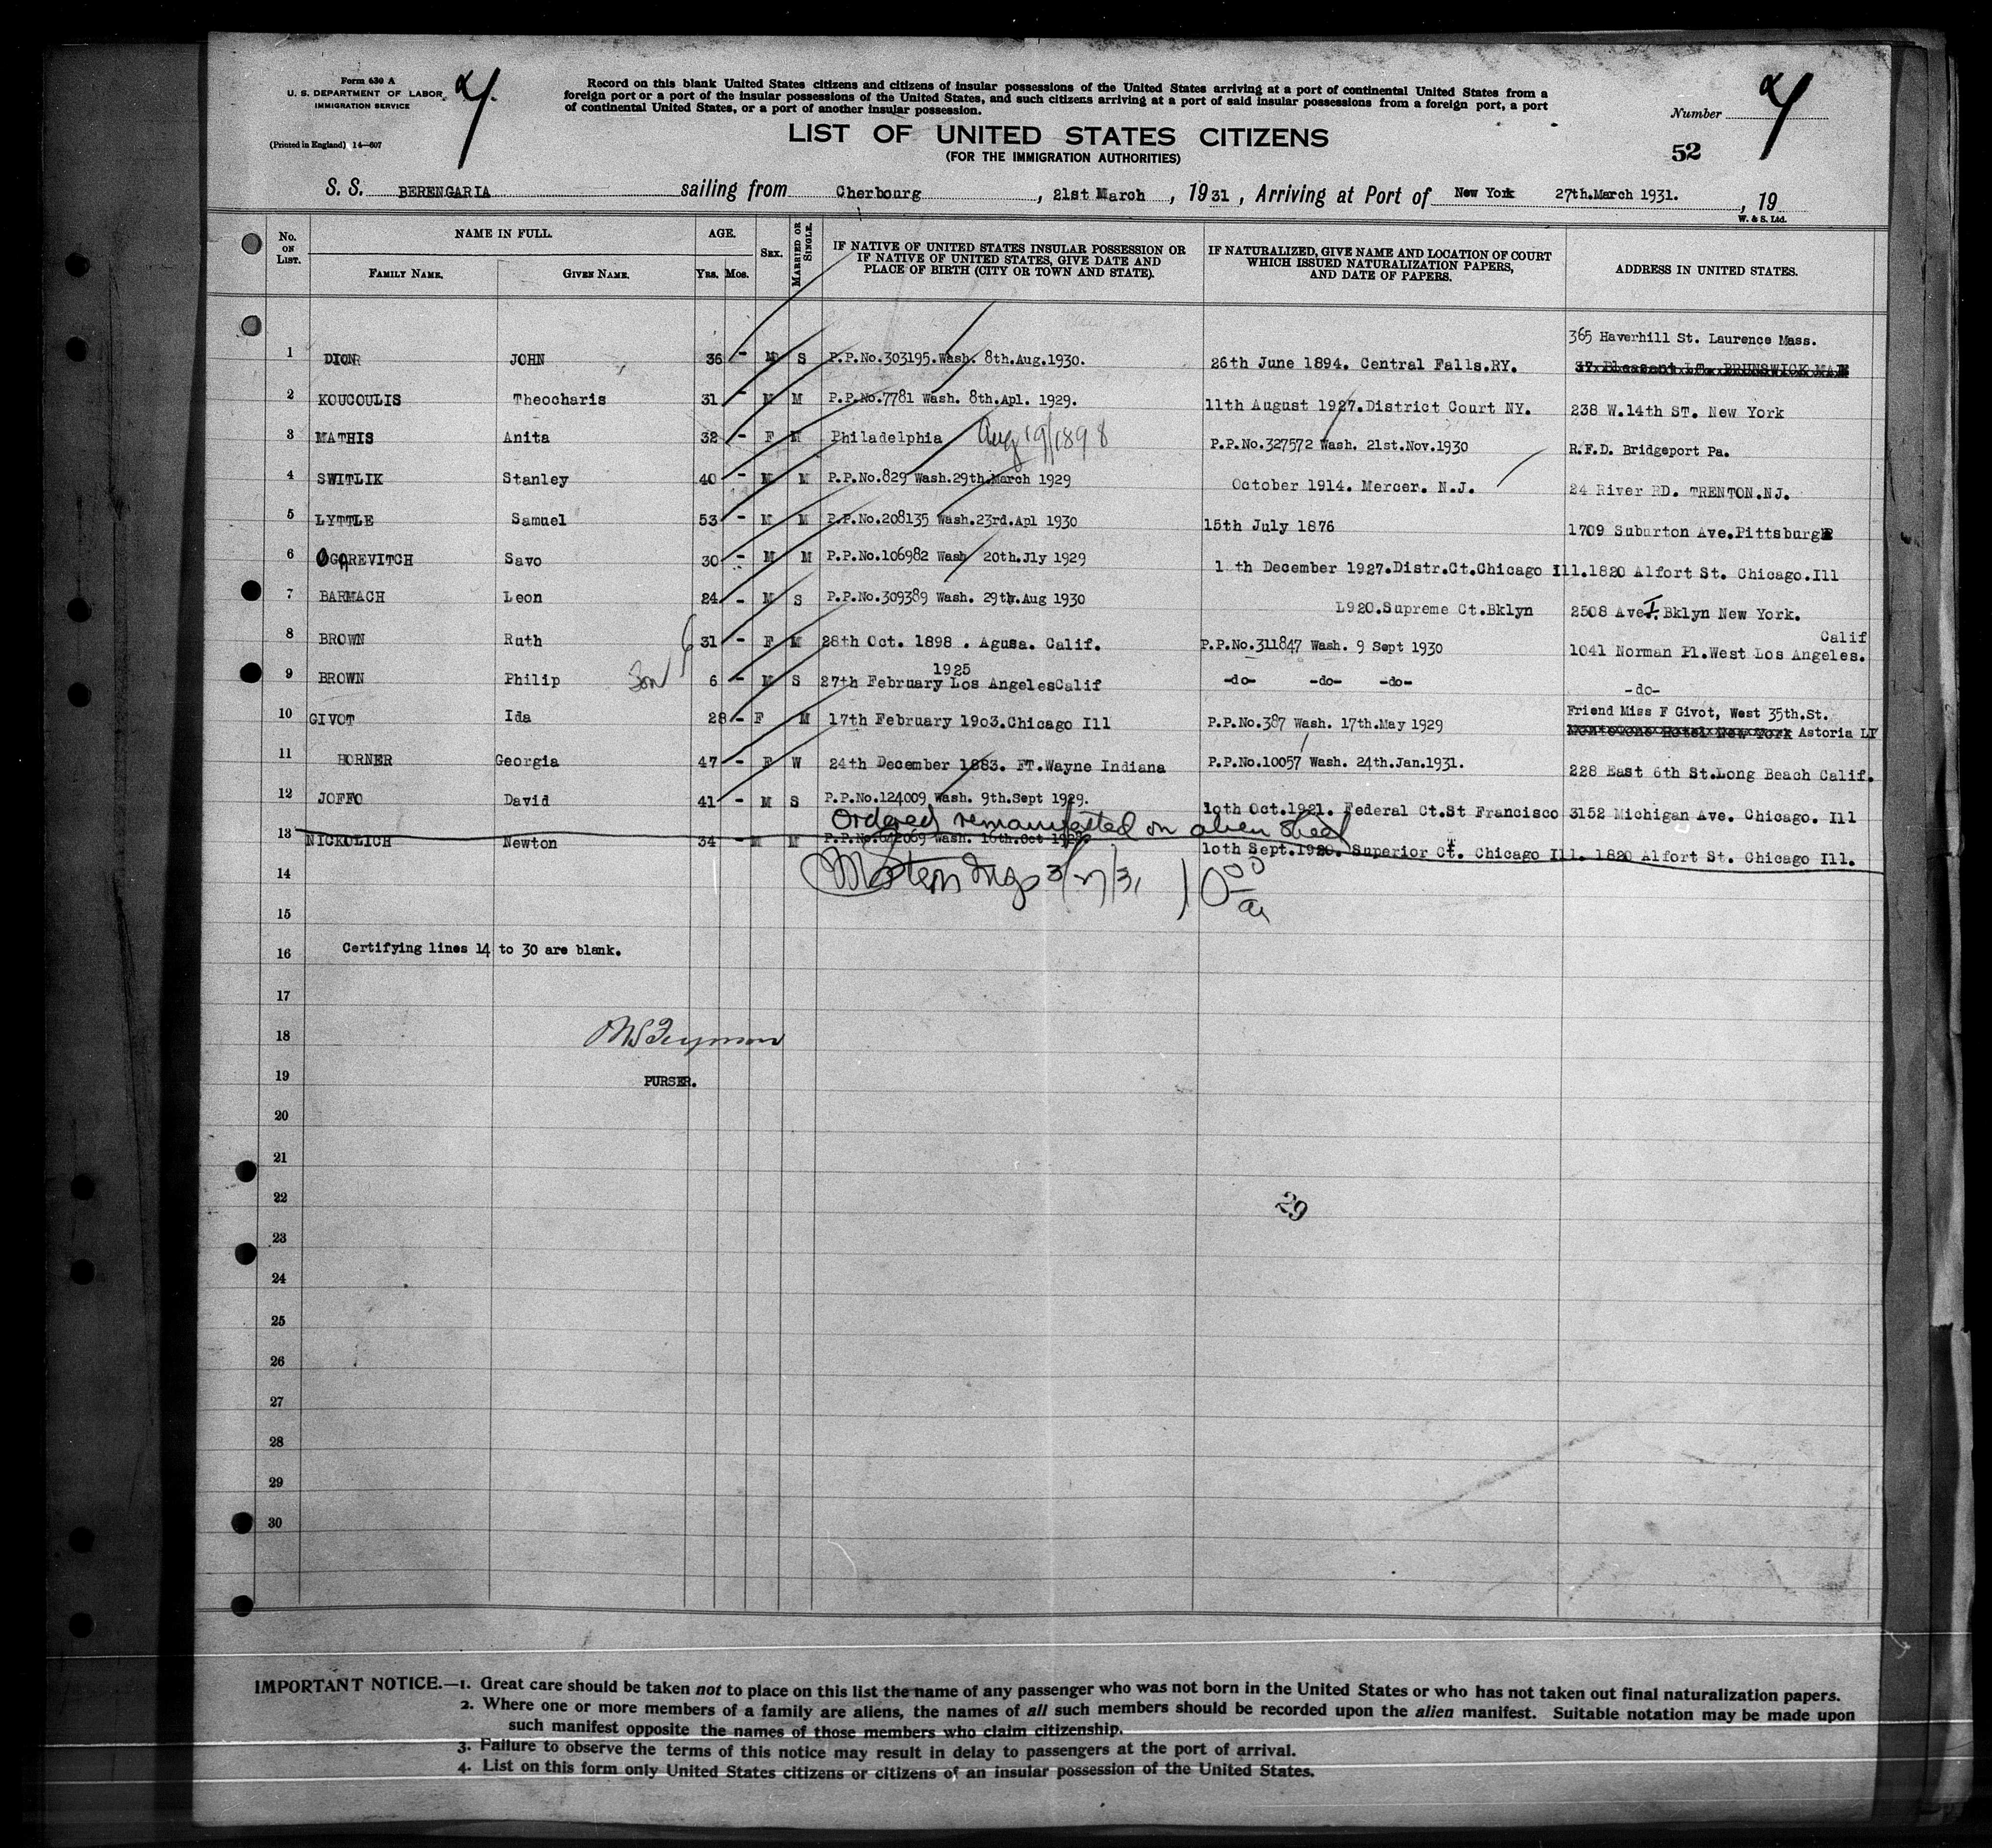 Form 630 A
U. S. DEPARTMENT OF LABOR
IMMIGRATION SERVICE
(Printed in England) 14—607
Record on this blank United States citizens and citizens of insular possessions of the United States arriving at a port of continental United States from a
foreign port or a port of the insular possessions of the United States, and such citizens arriving at a port of said insular possessions from a foreign port, a port
of continental United States, or a port of another insular possession.
LIST OF UNITED STATES CITIZENS
(FOR THE IMMIGRATION AUTHORITIES)
Number
52
S. S. BERENGARIA sailing from Cherbourg, 21st March, 1931, Arriving at Port of New York 27th.March 1931. , 19
W. & S. Ltd.
No. ON LIST. NAME IN FULL. FAMILY NAME. GIVEN NAME. AGE. Yrs. Mos. SEX. MARRIED OR SINGLE. IF NATIVE OF UNITED STATES INSULAR POSSESSION OR IF NATIVE OF UNITED STATES, GIVE DATE AND PLACE OF BIRTH (CITY OR TOWN AND STATE). IF NATURALIZED, GIVE NAME AND LOCATION OF COURT WHICH ISSUED NATURALIZATION PAPERS, AND DATE OF PAPERS. ADDRESS IN UNITED STATES.
365 Haverhill St. Laurence Mass.
1 DION JOHN 36 - M S P.P.No.303195.Wash. 8th.Aug.1930. 26th June 1894. Central Falls.RY. BRUNSWICK
2 KOUCOULIS Theocharis 31 - M M P.P.No.7781 Wash. 8th.Apl. 1929. 11th August 1927.District Court NY. 238 W.14th ST. New York
3 MATHIS Anita 32 - F M Philadelphia Aug 19/1898 P.P.No.327572 Wash. 21st.Nov.1930 R.F.D. Bridgeport Pa.
4 SWITLIK Stanley 40 - M M P.P.No.829 Wash.29th.March 1929 October 1914. Mercer. N.J. 24 River RD. TRENTON.NJ.
5 LYTTLE Samuel 53 - M M P.P.No.208135 Wash.23rd.Apl 1930 15th July 1876 1709 Suburton Ave.Pittsburg
6 OGOREVITCH Savo 30 - M M P.P.No.106982 Wash 20th.Jly 1929 1 th December 1927.Distr.Ct.Chicago Ill.1820 Alfort St. Chicago.Ill
7 BARMACH Leon 24 - M S P.P.No.309389 Wash. 29th.Aug 1930 L920.Supreme Ct.Bklyn 2508 Ave I. Bklyn New York.
8 BROWN Ruth 31 - F M 28th Oct. 1898 . Agusa. Calif. P.P.No.311847 Wash. 9 Sept 1930 1041 Norman Pl.West Los Angeles. Calif
9 BROWN Philip Son 6 - M S 27th February 1925 Los AngelesCalif -do- -do- -do- -do-
10 GIVOT Ida 28 - F M 17th February 1903.Chicago Ill P.P.No.387 Wash. 17th.May 1929 Friend Miss F Givot, West 35th.St.
Hotel New York Astoria LI
11 HORNER Georgia 47 - F W 24th December 1883. FT.Wayne Indiana P.P.No.10057 Wash. 24th.Jan.1931. 228 East 6th St.Long Beach Calif.
12 JOFFO David 41 - M S P.P.No.124009 Wash. 9th.Sept 1929. 10th Oct.1921. Federal Ct.St Francisco 3152 Michigan Ave. Chicago. Ill
Ordered remanifested on alien sheet
13 NICKOLICH Newton 34 - M M P.P.No.642069 Wash. 16th.Oct 1928. 10th Sept.1920. Superior Ct. Chicago Ill. 1820 Alfort St. Chicago Ill.
14 3/27/31 10 00 am
15
16 Certifying lines 14 to 30 are blank.
17
18
19 PURSER.
20
21
22 29
23
24
25
26
27
28
29
30
IMPORTANT NOTICE.—1. Great care should be taken not to place on this list the name of any passenger who was not born in the United States or who has not taken out final naturalization papers.
2. Where one or more members of a family are aliens, the names of all such members should be recorded upon the alien manifest. Suitable notation may be made upon
such manifest opposite the names of those members who claim citizenship.
3. Failure to observe the terms of this notice may result in delay to passengers at the port of arrival.
4. List on this form only United States citizens or citizens of an insular possession of the United States.